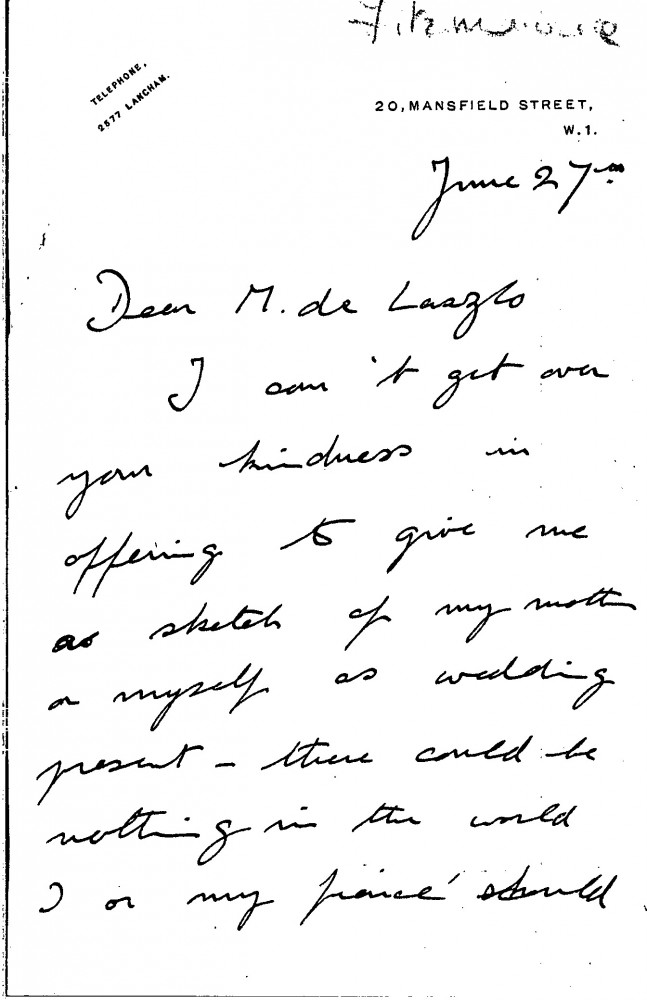 Fitzmaurice
TELEPHONE,
2577 LANGHAM.
20, MANSFIELD STREET,
W.1.
June 27th
Dear M. de Laszlo
I can't get over
your kindness in
offering to give me
as sketch of my mother
or myself as wedding
present – there could be
nothing in the world
I or my fiancé should